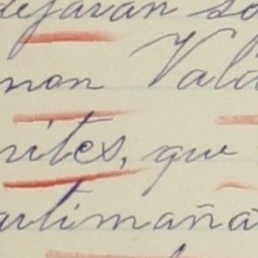 dejaran so
mon Vald
rites, que
artimaña